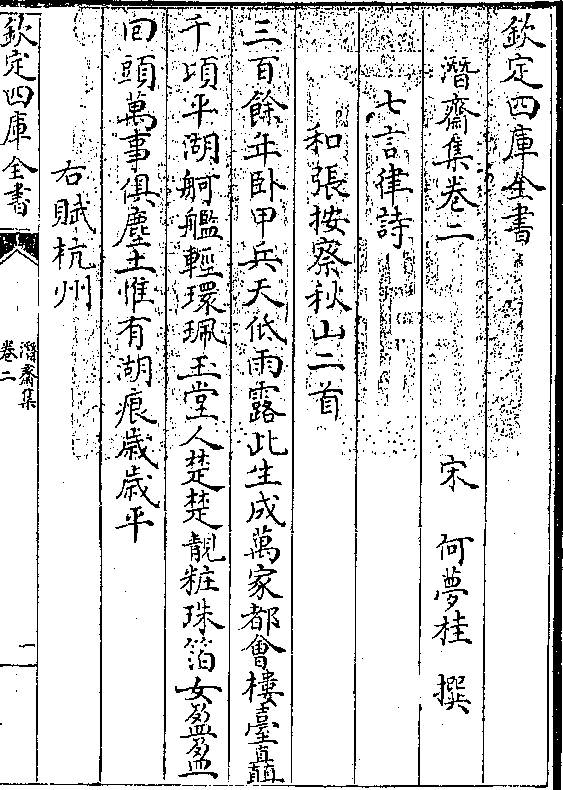 欽定四庫全書
潛齋集卷二
宋　何夢桂　撰
七言律詩
和張按察秋山二首
三百餘年卧甲兵天低雨露此生成萬家都會樓臺矗
千頃平湖舸艦輕環珮玉堂人楚楚靚粧珠箔女盈盈
回頭萬事俱塵土惟有湖痕歳歳平
右賦杭州
欽定四庫全書
潛齋集
卷二
二